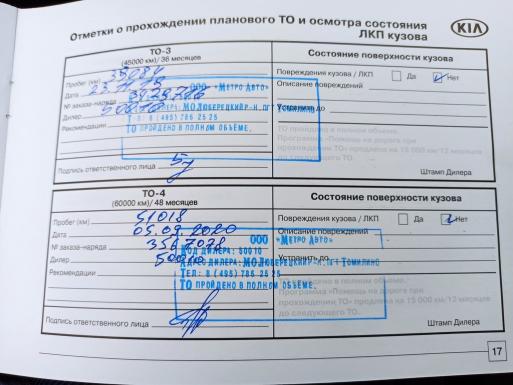 Отметки о прохождении планового ТО и осмотра состояния
ЛКП кузова
KIA
ТО-3
(45000 км)/ 36 месяцев
Состояние поверхности кузова
Пробег (км)
Повреждения кузова / ЛКП Да Нет
Дата
Описание повреждений
№ заказ-наряда
ООО «Метро Авто»
Дилер 50010
Адрес дилера: МО Люберецкий р-н, пгт Томилино
Устранить до
Тел: 8 (495) 786 25 25
Рекомендации
ТО пройдено в полном объёме.
ТО пройдено в полном объеме.
Программа «Помощь на дороге при
прохождении ТО» продлена на 15 000 км/12 месяцев
до следующего ТО.
Подпись ответственного лица
Штамп Дилера
ТО-4
(60000 км)/ 48 месяцев
Состояние поверхности кузова
Пробег (км) 51018
Повреждения кузова / ЛКП Да Нет
Дата 05.09.2020
№ заказа-наряда 3567028
ООО «Метро Авто»
Дилер 50010
Код дилера: 50010
Устранить до
Адрес дилера: МО Люберецкий р-н, пгт Томилино
Рекомендации
Тел: 8 (495) 786 25 25
ТО пройдено в полном объёме.
Программа «Помощь на дороге при
прохождении ТО» продлена на 15 000 км/12 месяцев
до следующего ТО.
Подпись ответственного лица
Штамп Дилера
17